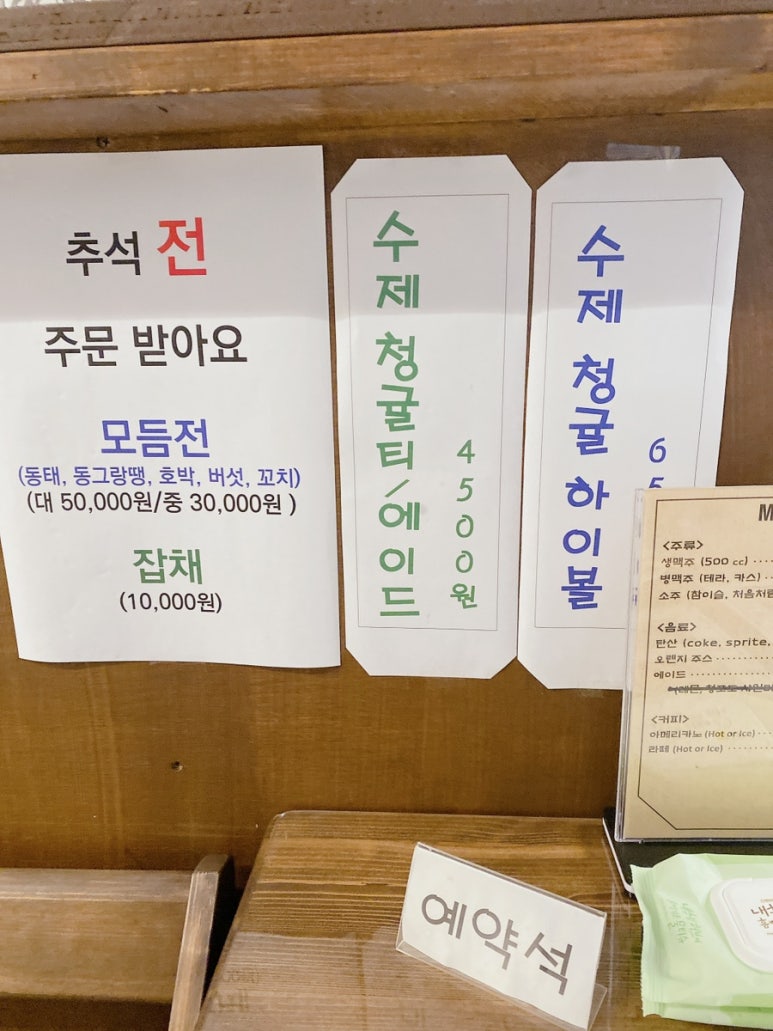 추석 전
주문 받아요
모듬전
(동태, 동그랑땡, 호박, 버섯, 꼬치)
(대 50,000원/중 30,000원 )
잡채
(10,000원)
수제 청귤티/에이드
4500원
수제 청귤 하이볼
6
M
<주류>
생맥주 (500 cc) ····
병맥주 (테라, 카스) ··
소주 (참이슬, 처음처럼
<음료>
탄산 (coke, sprite,
오렌지 주스 ·······
에이드 ··········
<커피>
아메리카노 (Hot or Ice) ···
라떼 (Hot or Ice) ······
예약석